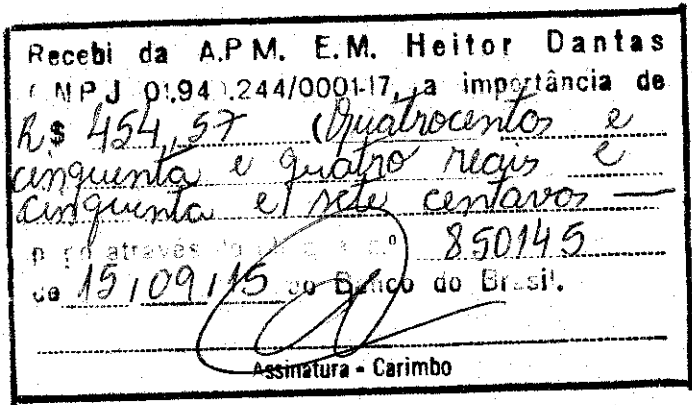 Recebi da A.P.M. E.M. Heitor Dantas
01.94 .244/0001-17, a importância de
R$ 454,57 (Quatrocentos e
cinquenta e quatro reais e
cinquenta e sete centavos —
através 850145
de 15/09/15 do Banco do Brasil.
Assinatura - Carimbo